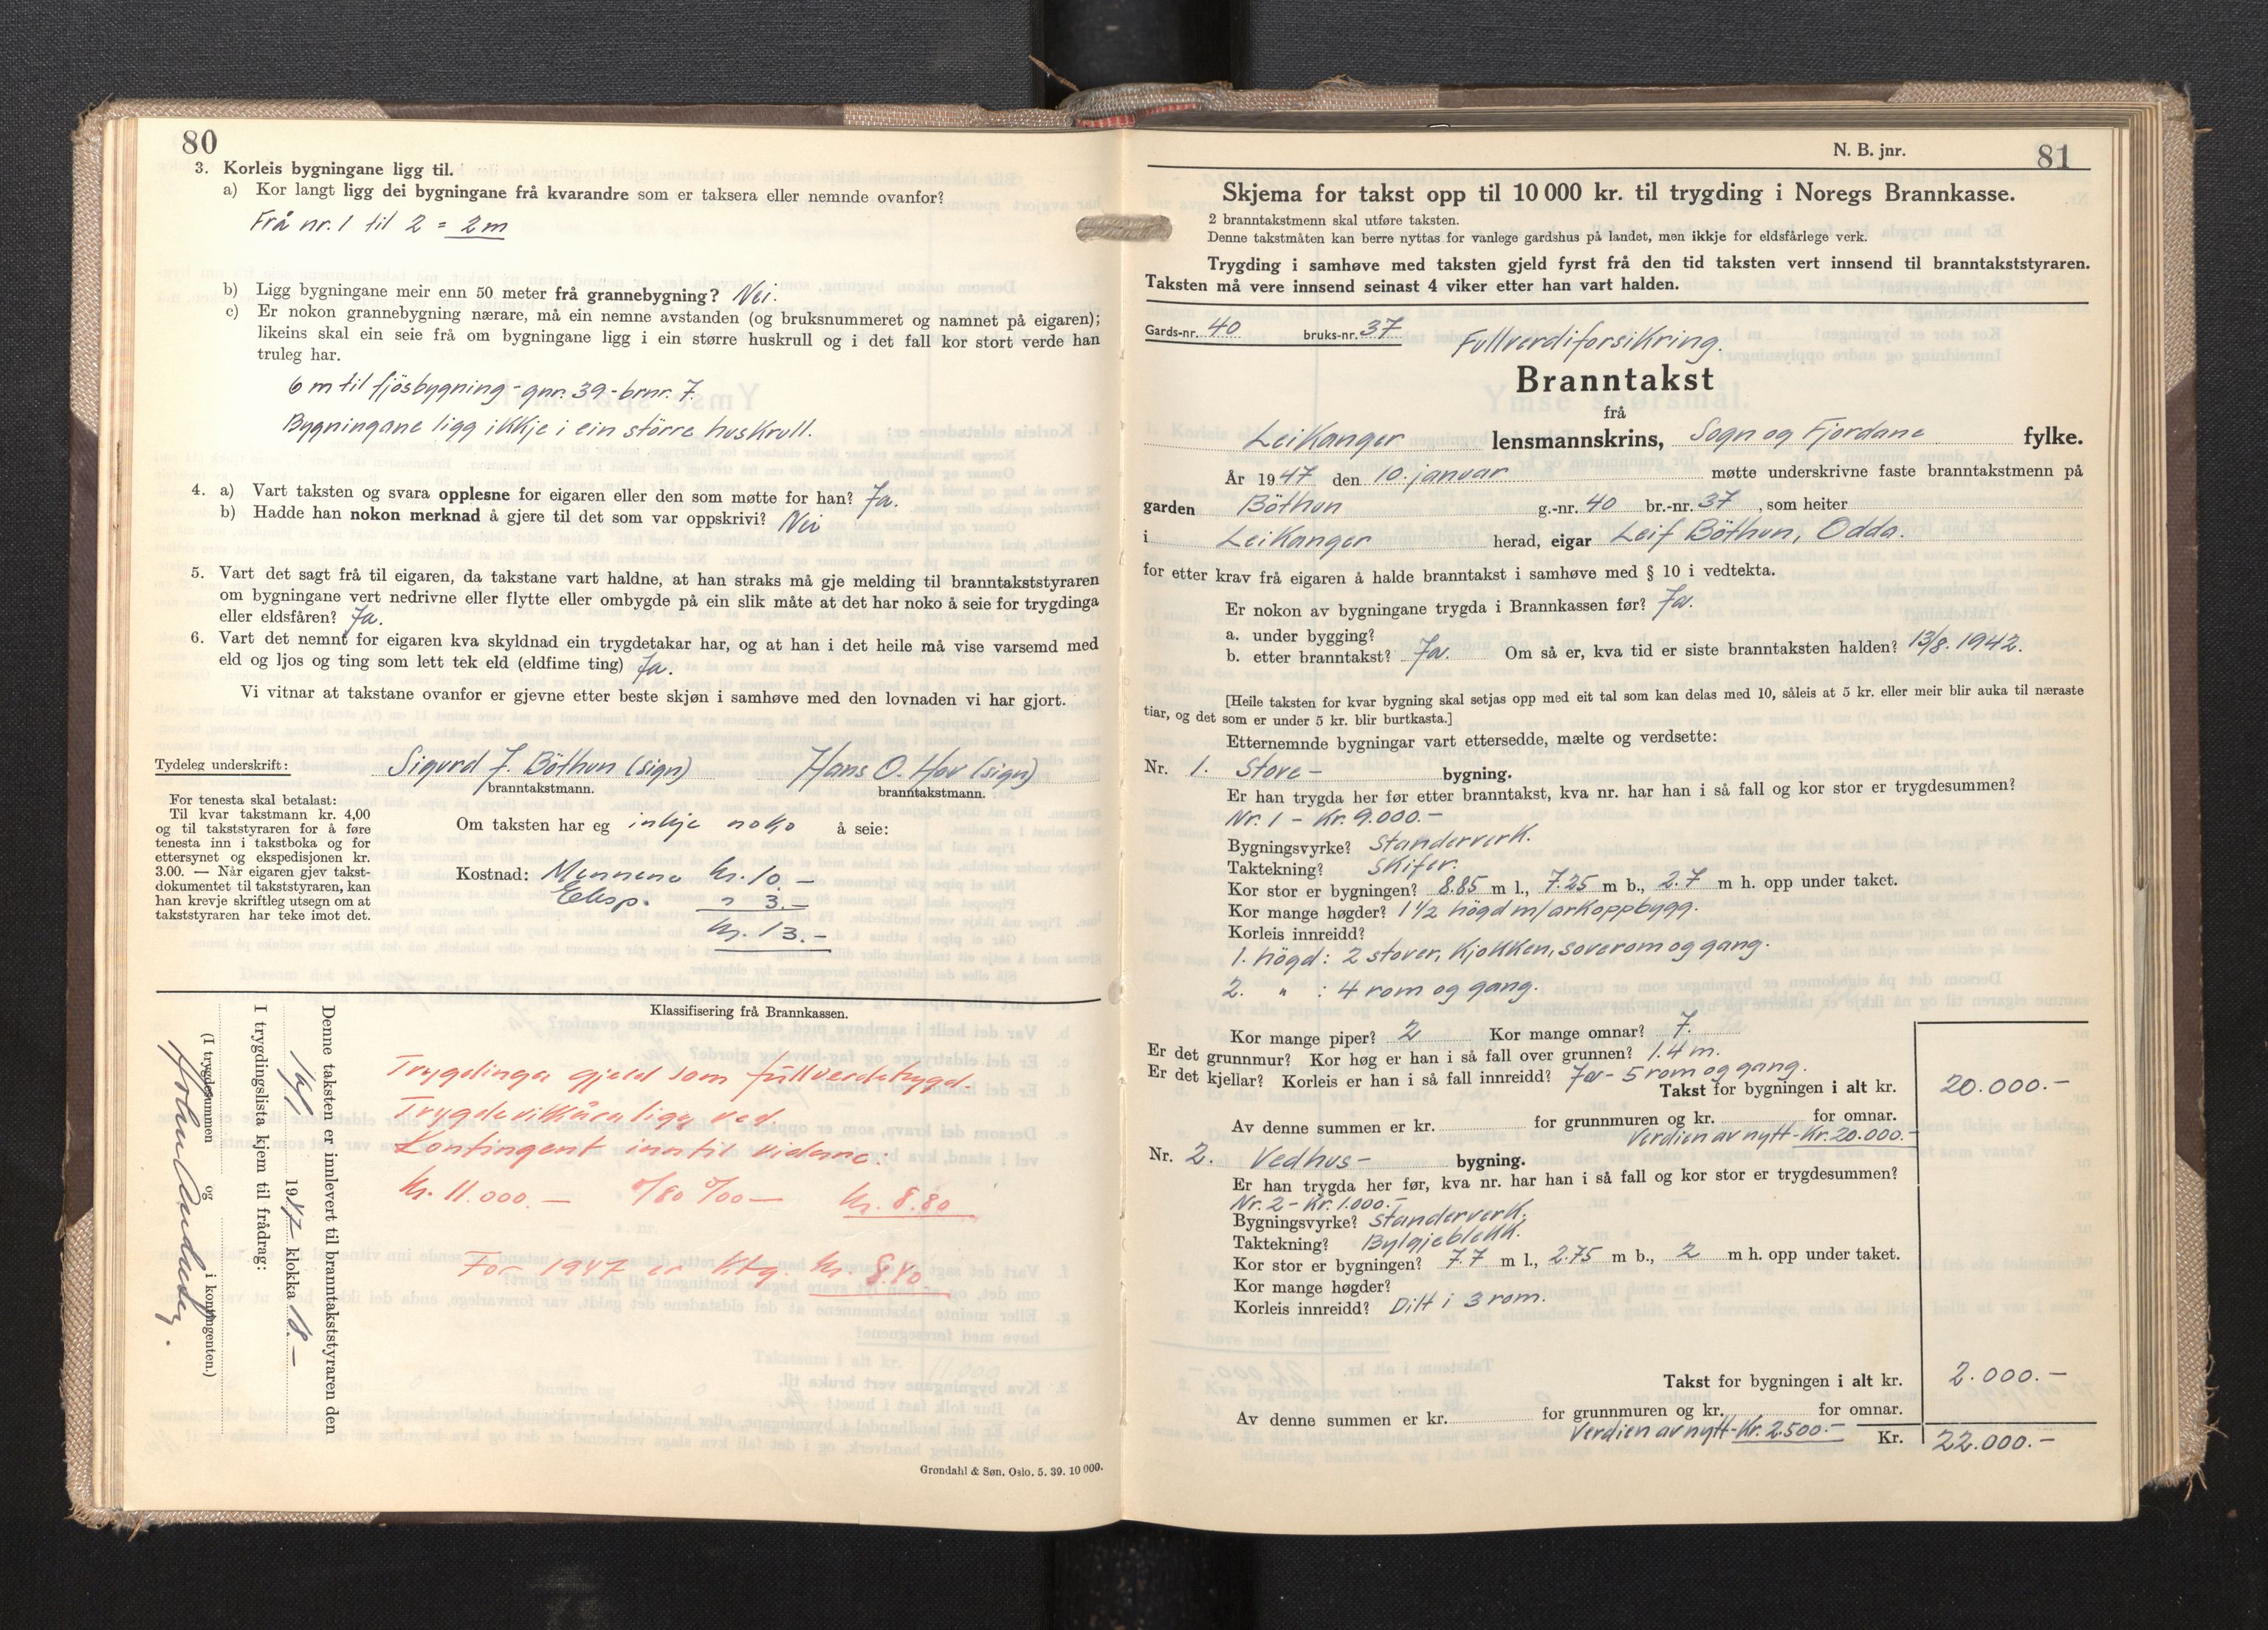 80
3. Korleis bygningane ligg til.
a) Kor langt ligg dei bygningane frå kvarandre som er taksera eller nemnde ovanfor?
Frå nr. 1 til 2 = 2 m
b) Ligg bygningane meir enn 50 meter frå grannebygning? Nei.
c) Er nokon grannebygning nærare, må ein nemne avstanden (og bruksnummeret og namnet på eigaren);
likeins skal ein seie frå om bygningane ligg i ein større huskrull og i det fall kor stort verde han
truleg har.
6 m til fjösbygning - gnr. 39 - brnr. 7.
Bygningane ligg ikkje i ein större huskrull.
4. a) Vart taksten og svara opplesne for eigaren eller den som møtte for han? Ja.
b) Hadde han nokon merknad å gjere til det som var oppskrivi? Nei
5. Vart det sagt frå til eigaren, da takstane vart haldne, at han straks må gje melding til branntakststyraren
om bygningane vert nedrivne eller flytte eller ombygde på ein slik måte at det har noko å seie for trygdinga
eller eldsfåren? Ja.
6. Vart det nemnt for eigaren kva skyldnad ein trygdetakar har, og at han i det heile må vise varsemd med
eld og ljos og ting som lett tek eld (eldfime ting) Ja.
Vi vitnar at takstane ovanfor er gjevne etter beste skjøn i samhøve med den lovnaden vi har gjort.
Tydeleg underskrift: Sigurd J. Böthun (sign) Hans O. Hov (sign)
branntakstmann. branntakstmann.
For tenesta skal betalast:
Til kvar takstmann kr. 4,00
og til takststyraren for å føre
tenesta inn i takstboka og for
ettersynet og ekspedisjonen kr.
3.00. — Når eigaren gjev takst-
dokumentet til takststyraren, kan
han krevje skriftleg utsegn om at
takststyraren har teke imot det.
Om taksten har eg inkje noko å seie:
Kostnad: Mennene kr. 10.-
Eksp. " 3.-
kr. 13.-
Klassifisering frå Brannkassen.
Trygdinga gjeld som fullverdetrygd.
Trygdevilkåra ligg ved.
Kontingent inntil vidare:
kr. 11.000.— 0/80 0/00 — kr. 8.80
For 1947 er ktg. kr. 8.80.
Denne taksten er innlevert til branntakststyraren den
16/1 1947 klokka 18.—
I trygdingslista kjem til frådrag:
(I trygdesummen og i kontingenten.)
Grøndahl & Søn, Oslo. 5. 39. 10 000.
N. B. jnr. 81
Skjema for takst opp til 10 000 kr. til trygding i Noregs Brannkasse.
2 branntakstmenn skal utføre taksten.
Denne takstmåten kan berre nyttas for vanlege gardshus på landet, men ikkje for eldsfårlege verk.
Trygding i samhøve med taksten gjeld fyrst frå den tid taksten vert innsend til branntakststyraren.
Taksten må vere innsend seinast 4 viker etter han vart halden.
Gards-nr. 40 bruks-nr. 37
Fullverdiforsikring.
Branntakst
frå
Leikanger lensmannskrins, Sogn og Fjordane fylke.
År 1947 den 10. januar møtte underskrivne faste branntakstmenn på
garden Böthun g.-nr. 40 br.-nr. 37, som heiter
i Leikanger herad, eigar Leif Böthun, Odda.
for etter krav frå eigaren å halde branntakst i samhøve med § 10 i vedtekta.
Er nokon av bygningane trygda i Brannkassen før? Ja.
a. under bygging?
b. etter branntakst? Ja. Om så er, kva tid er siste branntaksten halden? 13/8. 1942.
[Heile taksten for kvar bygning skal setjas opp med eit tal som kan delas med 10, såleis at 5 kr. eller meir blir auka til næraste
tiar, og det som er under 5 kr. blir burtkasta.]
Etternemnde bygningar vart ettersedde, mælte og verdsette:
Nr. 1. Stove- bygning.
Er han trygda her før etter branntakst, kva nr. har han i så fall og kor stor er trygdesummen?
Nr. 1 - Kr. 9.000.-
Bygningsvyrke? Standerverk.
Taktekning? Skifer.
Kor stor er bygningen? 8.85 m l., 7.25 m b., 2.7 m h. opp under taket.
Kor mange høgder? 1 1/2 högd m/arkoppbygg.
Korleis innreidd?
1. högd: 2 stover, kjökken, soverom og gang.
2. " : 4 rom og gang.
Kor mange piper? 2 Kor mange omnar? 7.
Er det grunnmur? Kor høg er han i så fall over grunnen? 1.4 m.
Er det kjellar? Korleis er han i så fall innreidd? Ja - 5 rom og gang.
Takst for bygningen i alt kr. 20.000.-
Av denne summen er kr. for grunnmuren og kr. for omnar.
Verdien av nytt - Kr. 20.000.-
Nr. 2. Vedhus- bygning.
Er han trygda her før, kva nr. har han i så fall og kor stor er trygdesummen?
Nr. 2 - Kr. 1.000.-
Bygningsvyrke? Standerverk.
Taktekning? Bylgjeblekk.
Kor stor er bygningen? 7.7 m l., 2.75 m b., 2 m h. opp under taket.
Kor mange høgder?
Korleis innreidd? Dilt i 3 rom.
Takst for bygningen i alt kr. 2.000.-
Av denne summen er kr. for grunnmuren og kr. for omnar.
Verdien av nytt - Kr. 2.500.-
Kr. 22.000.-